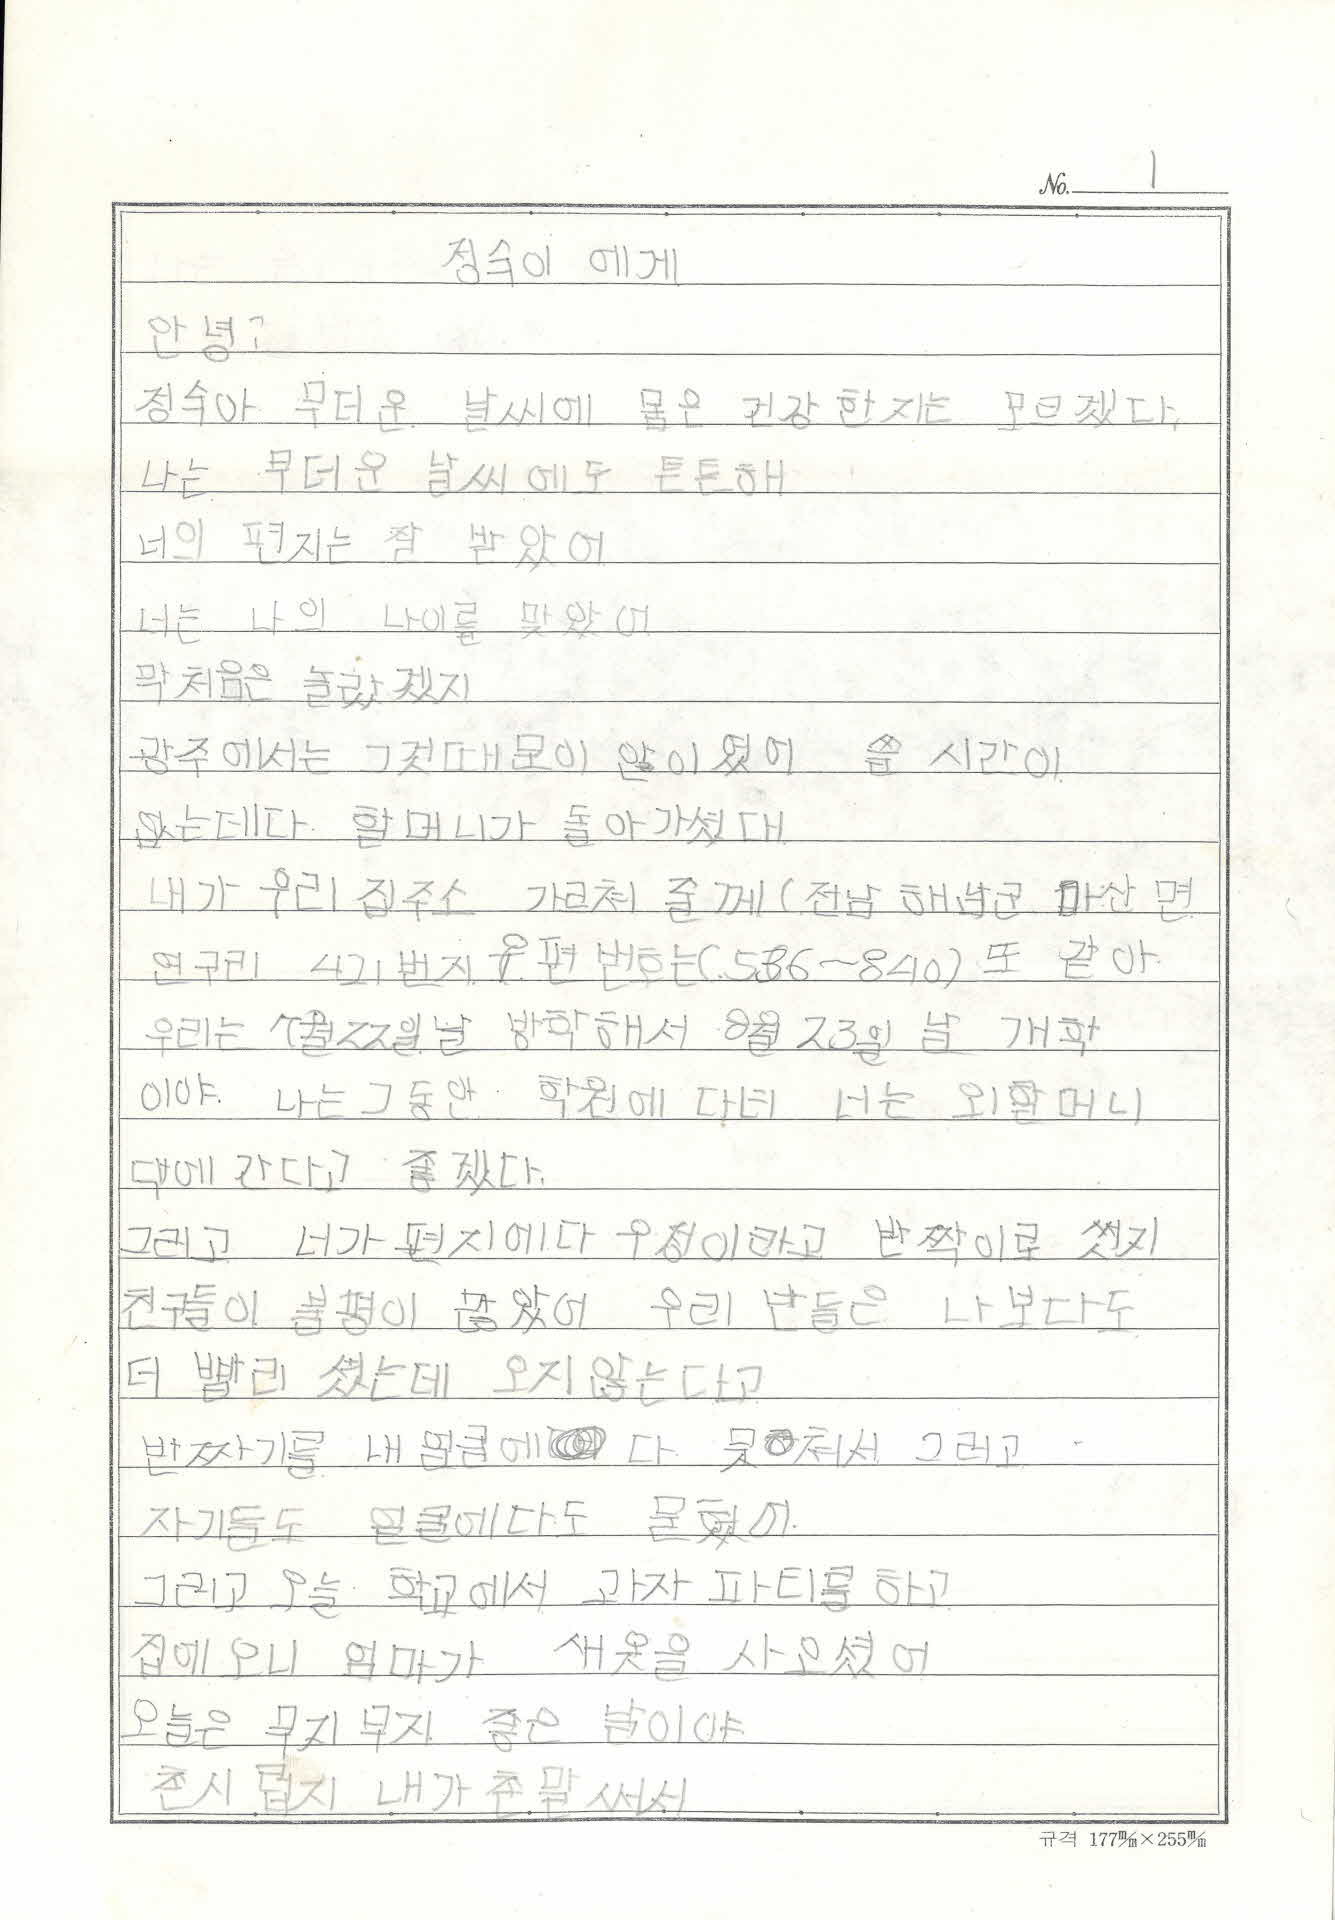 No. 1
정숙이 에게
안녕?
정숙아 무더운 날씨에 몸은 건강한지는 모르겠다.
나는 무더운 날씨에도 튼튼해
너의 편지는 잘 받았어
너는 나의 나이를 맞았어
막처음은 놀랐겠지
광주에서는 그것때문이 많이였어 쓸 시간이
없는데다 할머니가 돌아가셨대
내가 우리 집주소 가르쳐 줄께(전남 해남군 마산면
연구리 421번지 우편번호는(536~840) 또 같아
우리는 7월22일날 방학해서 8월 23일 날 개학
이야. 나는그동안 학원에 다녀 너는 외할머니
댁에 간다고 좋겠다.
그리고 너가 편지에다 우정이라고 반짝이로 썼지
친구들이 불평이 많았어 우리 반들은 나보다도
더 빨리 썼는데 오지않는다고
반짜기를 내 얼굴에 다 뭇쳐서 그리고
자기들도 얼굴에다도 뭍혔어.
그리고 오늘 학교에서 과자 파티를 하고
집에오니 엄마가 새옷을 사오셨어
오늘은 무지무지 좋은 날이야
촌시럽지 내가 촌말써서
규격 177㎜×255㎜